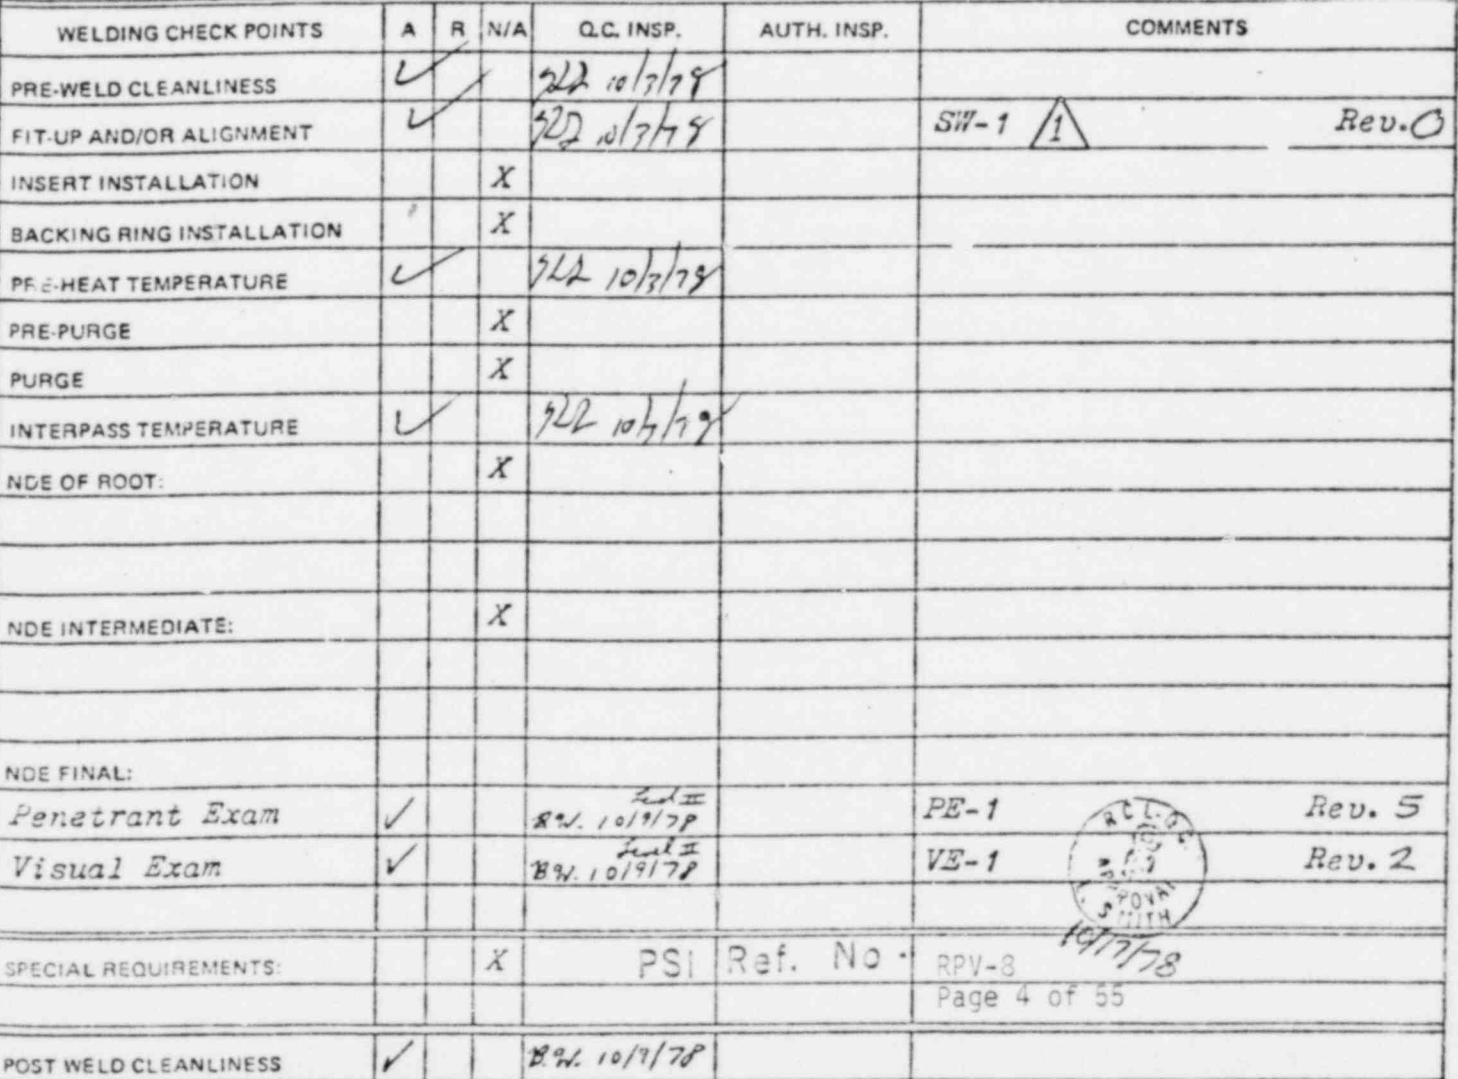 WELDING CHECK POINTS A R N/A Q.C. INSP. AUTH. INSP. COMMENTS
PRE-WELD CLEANLINESS ✓ 10/3/78
FIT-UP AND/OR ALIGNMENT ✓ 10/3/78 SW-1 1 Rev. 0
INSERT INSTALLATION X
BACKING RING INSTALLATION X
PRE-HEAT TEMPERATURE ✓ 10/3/78
PRE-PURGE X
PURGE X
INTERPASS TEMPERATURE ✓
NDE OF ROOT: X
NDE INTERMEDIATE: X
NDE FINAL:
Level II
Penetrant Exam ✓ B.W. 10/9/78 PE-1 Rev. 5
Level II
Visual Exam ✓ B.W. 10/9/78 VE-1 Rev. 2
RCI-QC
APPROVAL
SMITH
10/17/78
SPECIAL REQUIREMENTS: X PSI Ref. No. RPV-8
Page 4 of 55
POST WELD CLEANLINESS ✓ B.W. 10/9/78